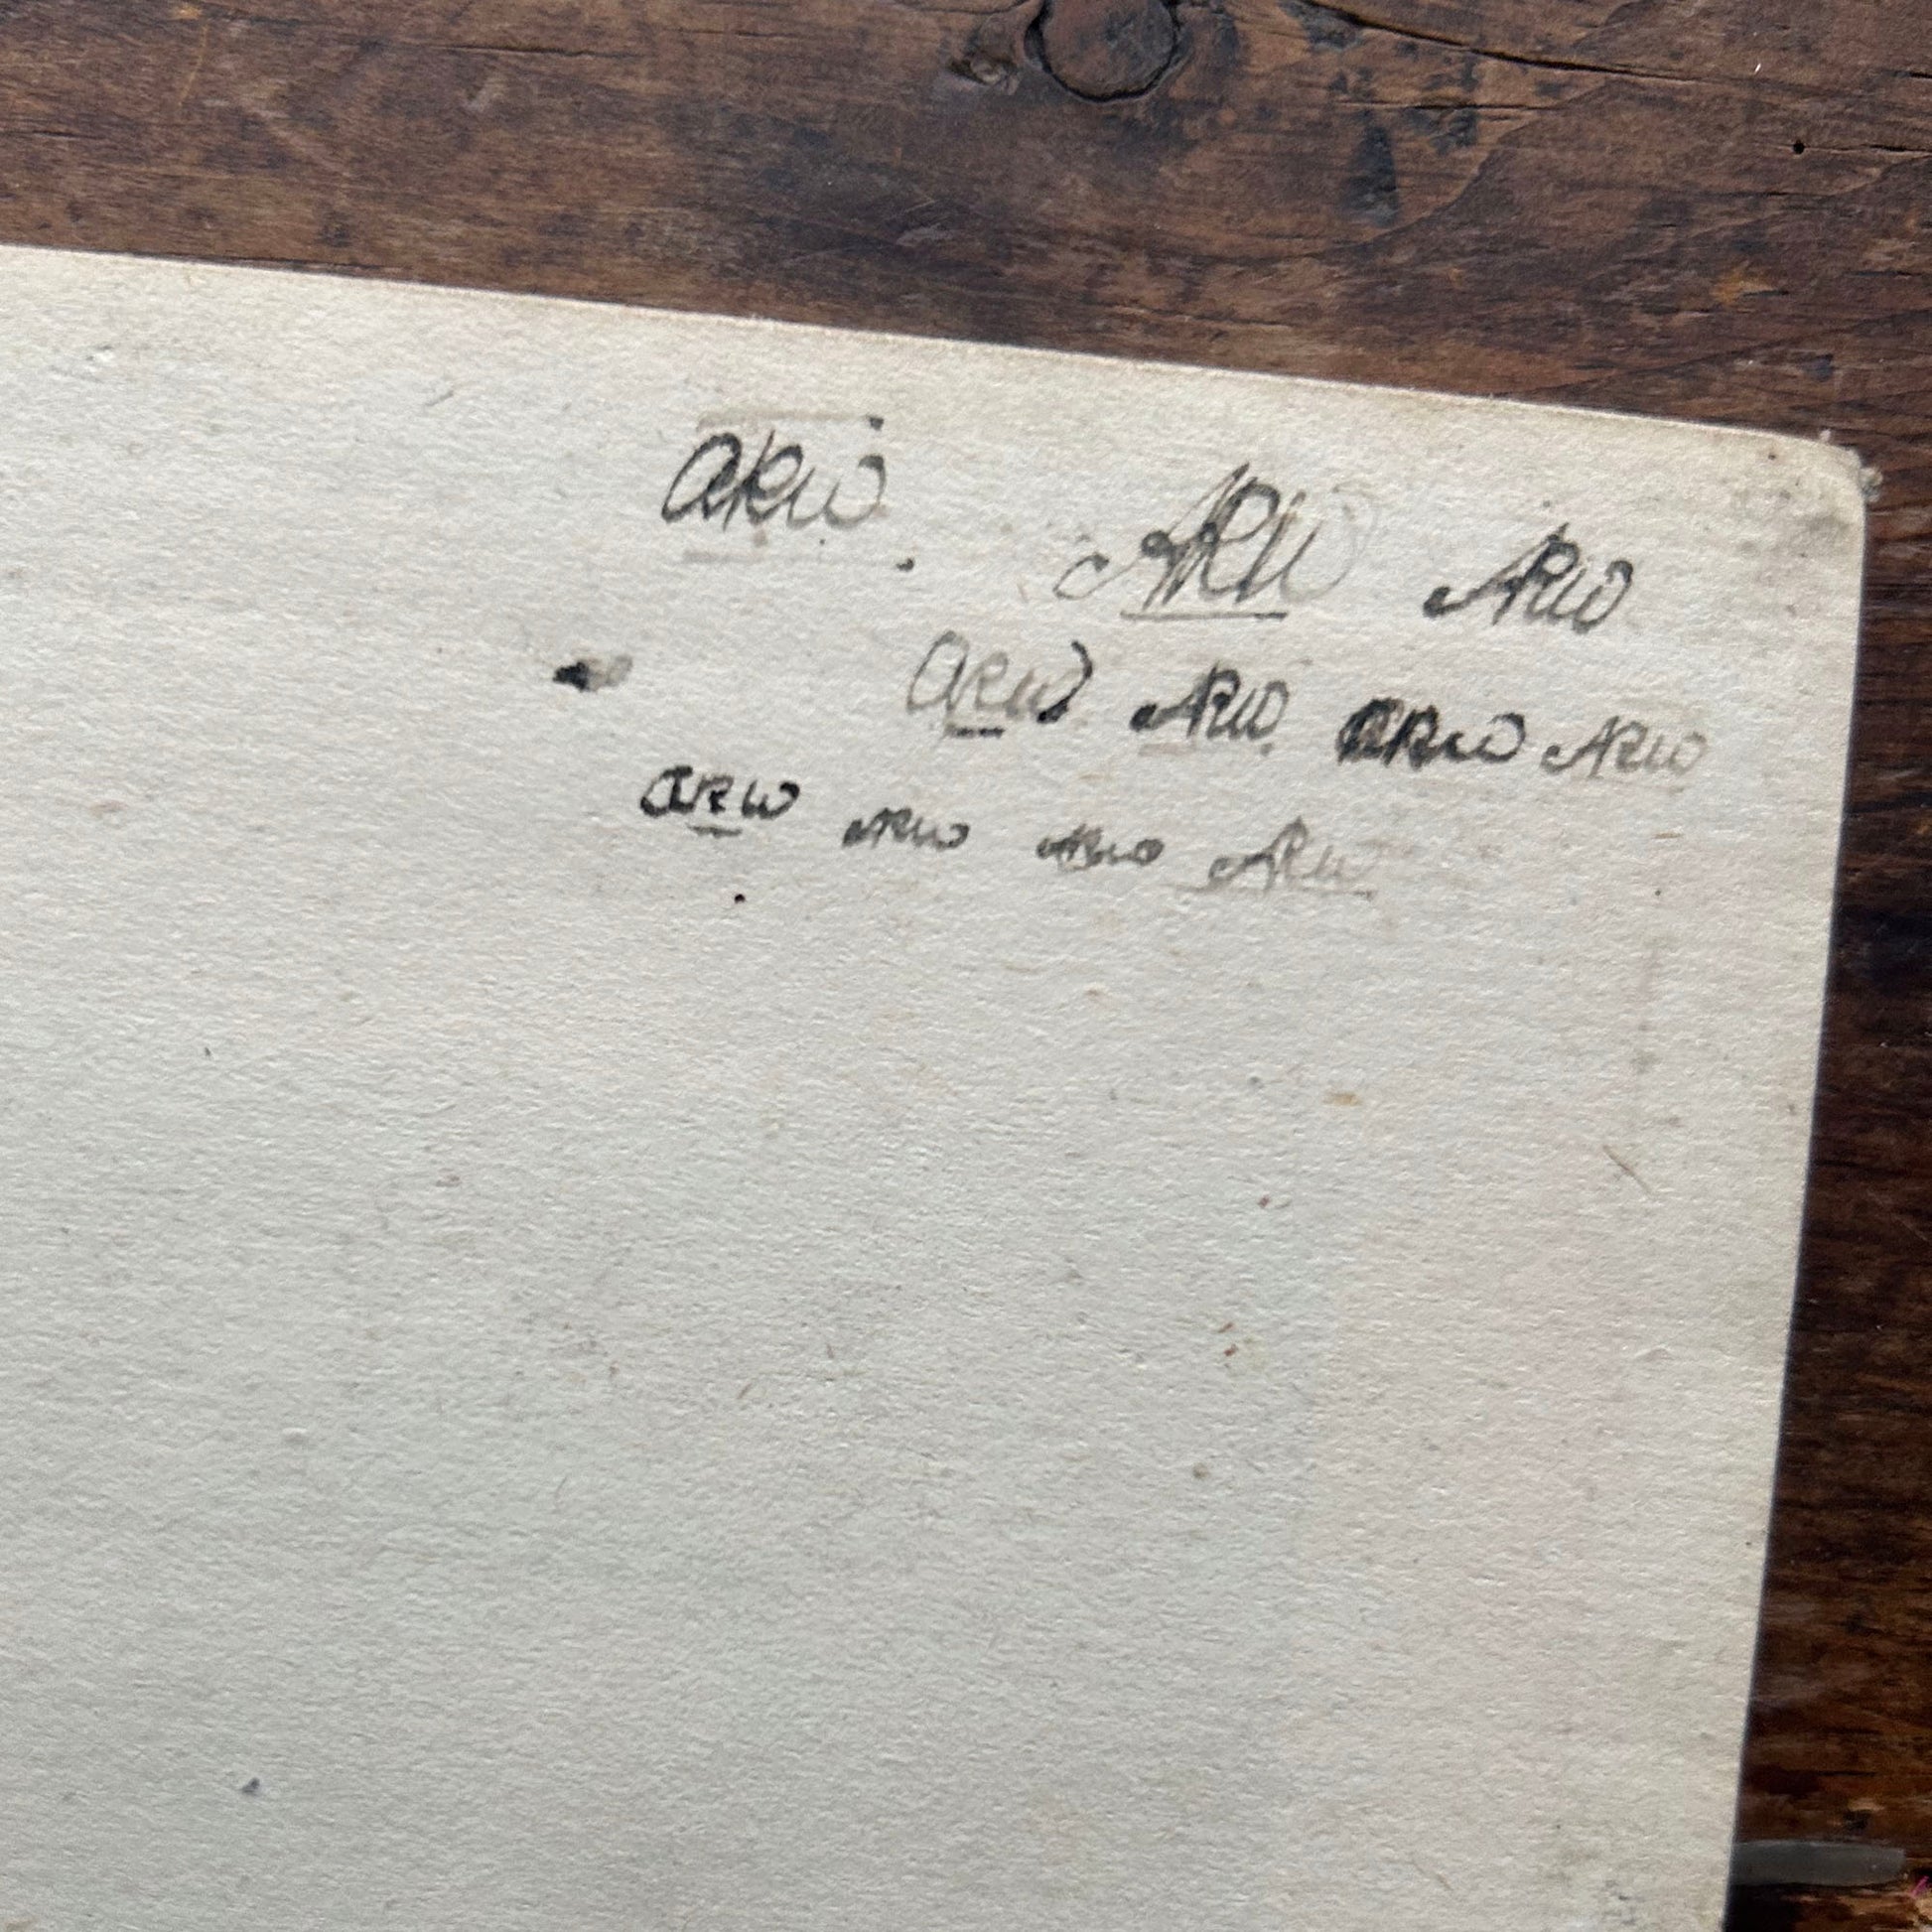 ARW. ARW ARW
ARW ARW. ARW ARW
ARW ARW ARW ARW